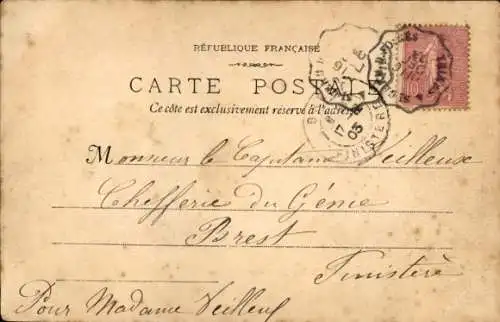 RÉPUBLIQUE FRANÇAISE
CARTE POSTALE
Ce côté est exclusivement réservé à l'adresse
FINISTERE
03
Monsieur le Capitaine Veilleux
Chefferie du Génie
Brest
Finistère
Pour Madame Veilleux